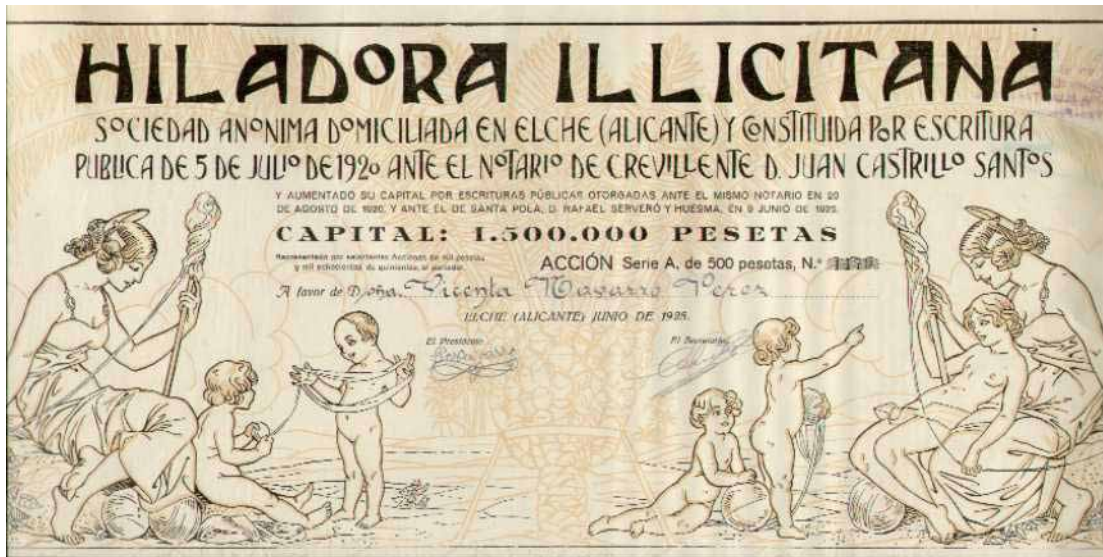 HILADORA ILLICITANA
SOCIEDAD ANONIMA DOMICILIADA EN ELCHE (ALICANTE) Y CONSTITUIDA POR ESCRITURA
PUBLICA DE 5 DE JULIO DE 1920 ANTE EL NOTARIO DE CREVILLENTE D. JUAN CASTRILLO SANTOS
Y AUMENTADO SU CAPITAL POR ESCRITURAS PÚBLICAS OTORGADAS ANTE EL MISMO NOTARIO EN 20
DE AGOSTO DE 1920, Y ANTE EL DE SANTA POLA, D. RAFAEL SERVERÓ Y HUESMA, EN 9 JUNIO DE 1925.
CAPITAL: 1.500.000 PESETAS
Representado por seiscientas Acciones de mil pesetas
y mil ochocientas de quinientas, al portador.
ACCIÓN Serie A, de 500 pesetas, N.º
A favor de Doña. Vicenta Navarro Perez
ELCHE (ALICANTE) JUNIO DE 1925.
El Presidente
El Secretario